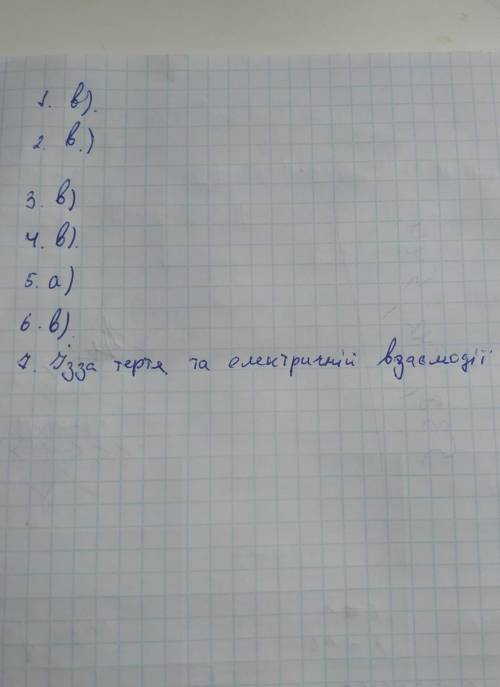 1. в).
2. в.)
3. в)
4. в).
5. а)
6. в).
7. Ізза тертя та електричній взаємодії